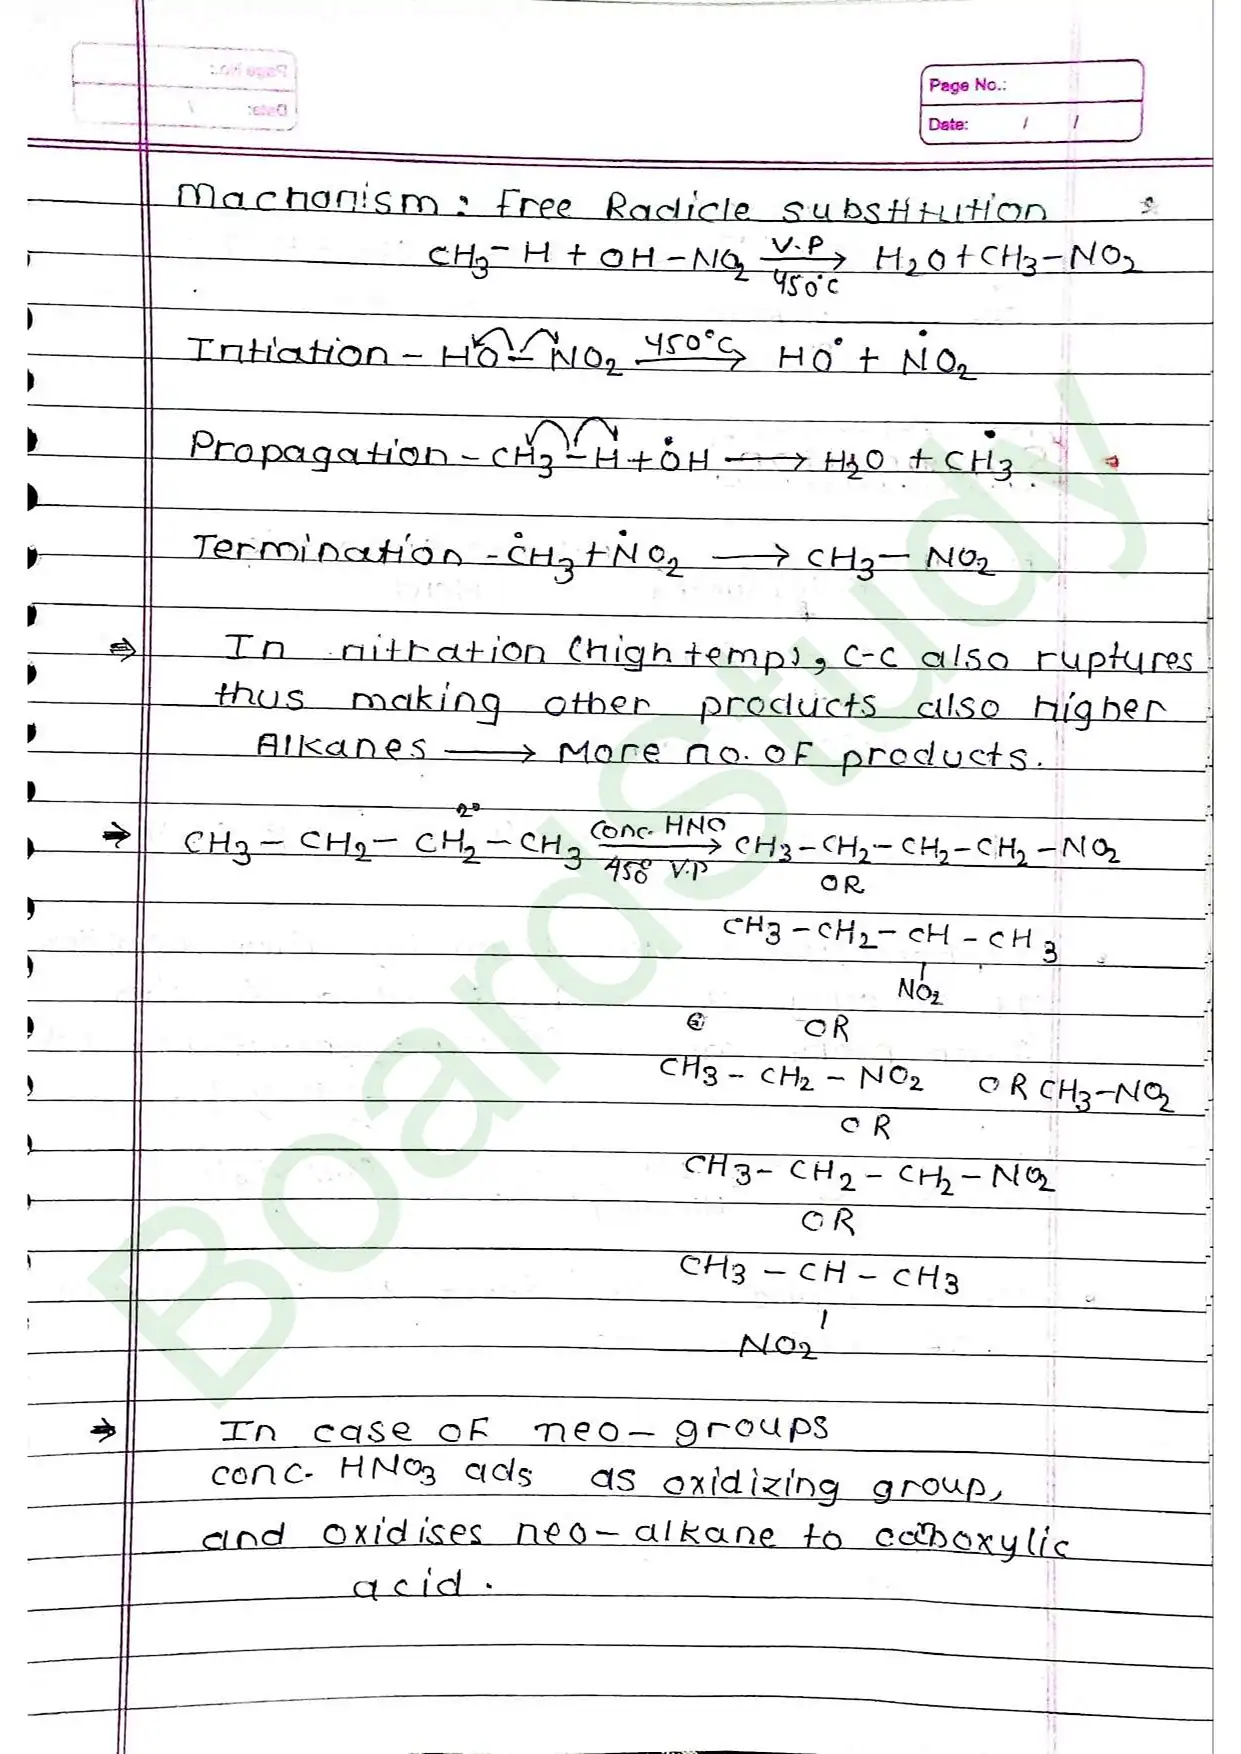 Page No.:
Date: / /
Machanism: Free Radicle substitution
CH3-H + OH-NO2 V.P → 450°C H2O + CH3-NO2
Intiation - HO-NO2 450°C → HO• + •NO2
Propagation - CH3-H + •OH → H2O + •CH3
Termination - •CH3 + •NO2 → CH3-NO2
⇒ In nitration (high temp), C-C also ruptures
thus making other products also higher
Alkanes → More no. of products.
2°
⇒ CH3-CH2-CH2-CH3 conc. HNO → 450 V.P CH3-CH2-CH2-CH2-NO2
OR
CH3-CH2-CH-CH3
NO2
OR
CH3-CH2-NO2 OR CH3-NO2
OR
CH3-CH2-CH2-NO2
OR
CH3-CH-CH3
NO2
⇒ In case of neo-groups
conc. HNO3 ads as oxidizing group,
and oxidises neo-alkane to caboxylic
acid.
BoardStudy